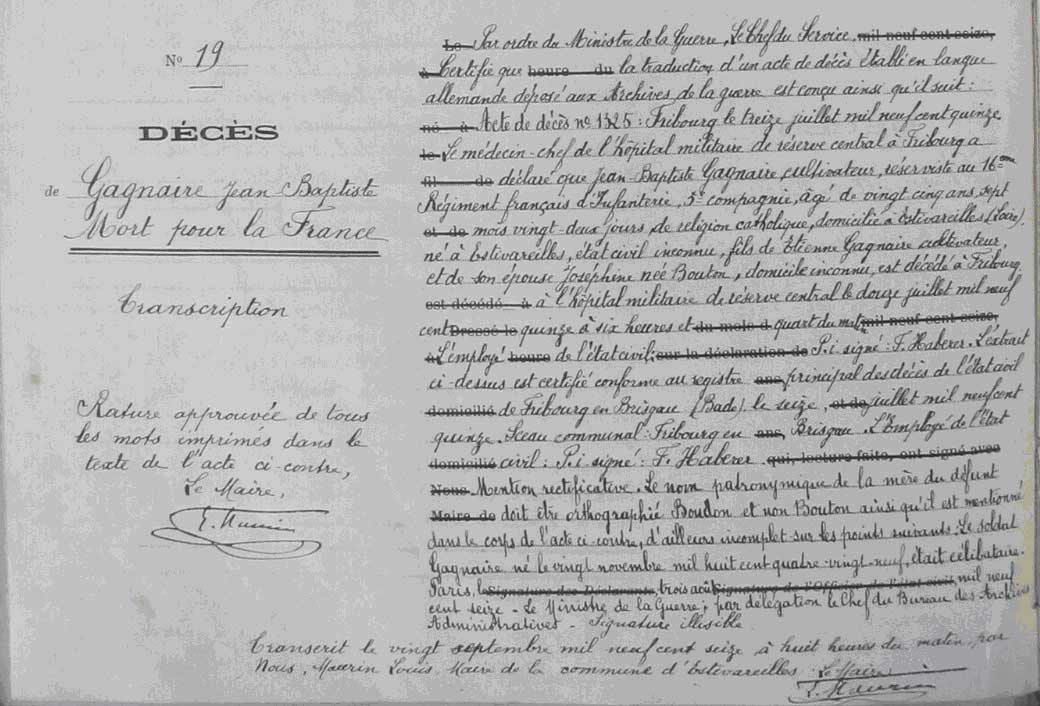 N° 19
DÉCÈS
de Gagnaire Jean Baptiste
Mort pour la France
Transcription
Rature approuvée de tous
les mots imprimés dans le
texte de l'acte ci-contre,
Le Maire,
L. Maurin
Le Par ordre du Ministre de la Guerre, Le Chef du Service mil neuf cent seize,
à Certifie que heure du la traduction d'un acte de décès établi en langue
allemande déposé aux Archives de la guerre est conçu ainsi qu'il suit :
né à Acte de décès n° 1325 : Fribourg le treize juillet mil neuf cent quinze
le Le médecin-chef de l'hôpital militaire de réserve central à Fribourg a
fil de déclaré que Jean-Baptiste Gagnaire, cultivateur, réserviste au 16eme
Régiment français d'Infanterie, 5e compagnie, âgé de vingt cinq ans, sept
et de mois vingt-deux jours, de religion catholique, domicilié à Estivareilles (Loire).
né à Estivareilles, état civil inconnu, fils de Etienne Gagnaire cultivateur,
et de son épouse Joséphine née Bouton, domicile inconnu, est décédé à Fribourg
est décédé à à l'hôpital militaire de réserve central le douze juillet mil neuf
cent Dressé le quinze à six heures et du mois d quart du matin mil neuf cent seize,
à L'employé heure de l'état civil: sur la déclaration de P. i. signé : F. Haberer. L'extrait
ci-dessus est certifié conforme au registre ans, principal des décès de l'état civil
domicilié de Fribourg en Brisgau (Bade) le seize, et de juillet mil neuf cent
quinze. Sceau communal : Fribourg en ans, Brisgau. L'Employé de l'état
domicilié civil : P. i. signé : F. Haberer qui, lecture faite, ont signé avec
Nous Mention rectificative. Le nom patronymique de la mère du défunt
Maire de doit être orthographié Boudon et non Bouton ainsi qu'il est mentionné
dans le corps de l'acte ci-contre, d'ailleurs incomplet sur les points suivants : Le soldat
Gagnaire né le vingt novembre mil huit cent quatre-vingt-neuf, était célibataire.
Paris, le Signature des Déclarants, trois août Signature de l'Officier de l'état civil, mil neuf
cent seize - Le Ministre de la Guerre, par délégation le Chef du Bureau des Archives
Administratives - Signature illisible
Transcrit le vingt septembre mil neuf cent seize, à huit heures du matin, par
Nous, Maurin Louis, Maire de la commune d'Estivareilles. Le Maire
L. Maurin